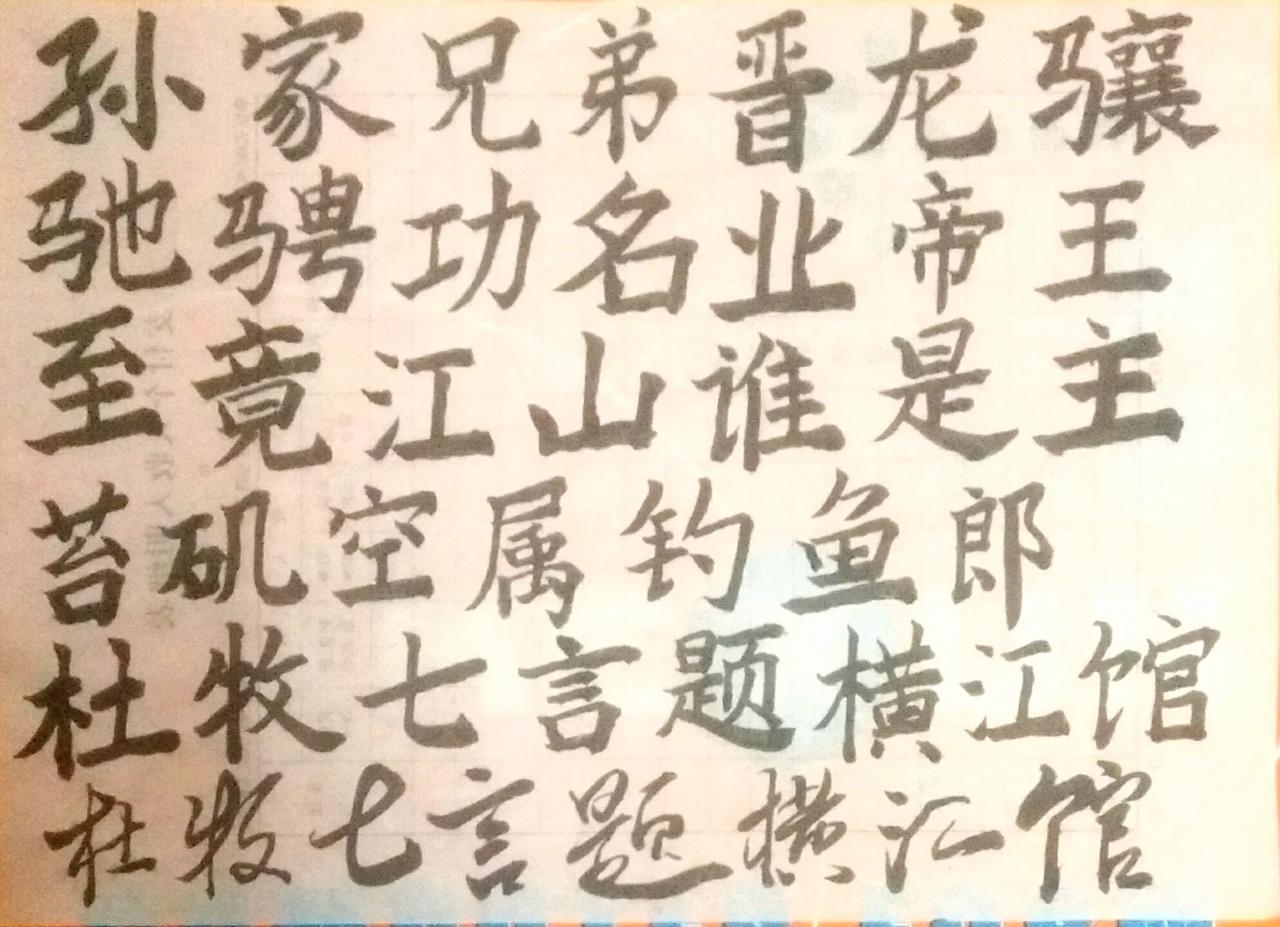 孙家兄弟晋龙骧
驰骋功名业帝王
至竟江山谁是主
苔矶空属钓鱼郎
杜牧七言题横江馆
杜牧七言题横江馆